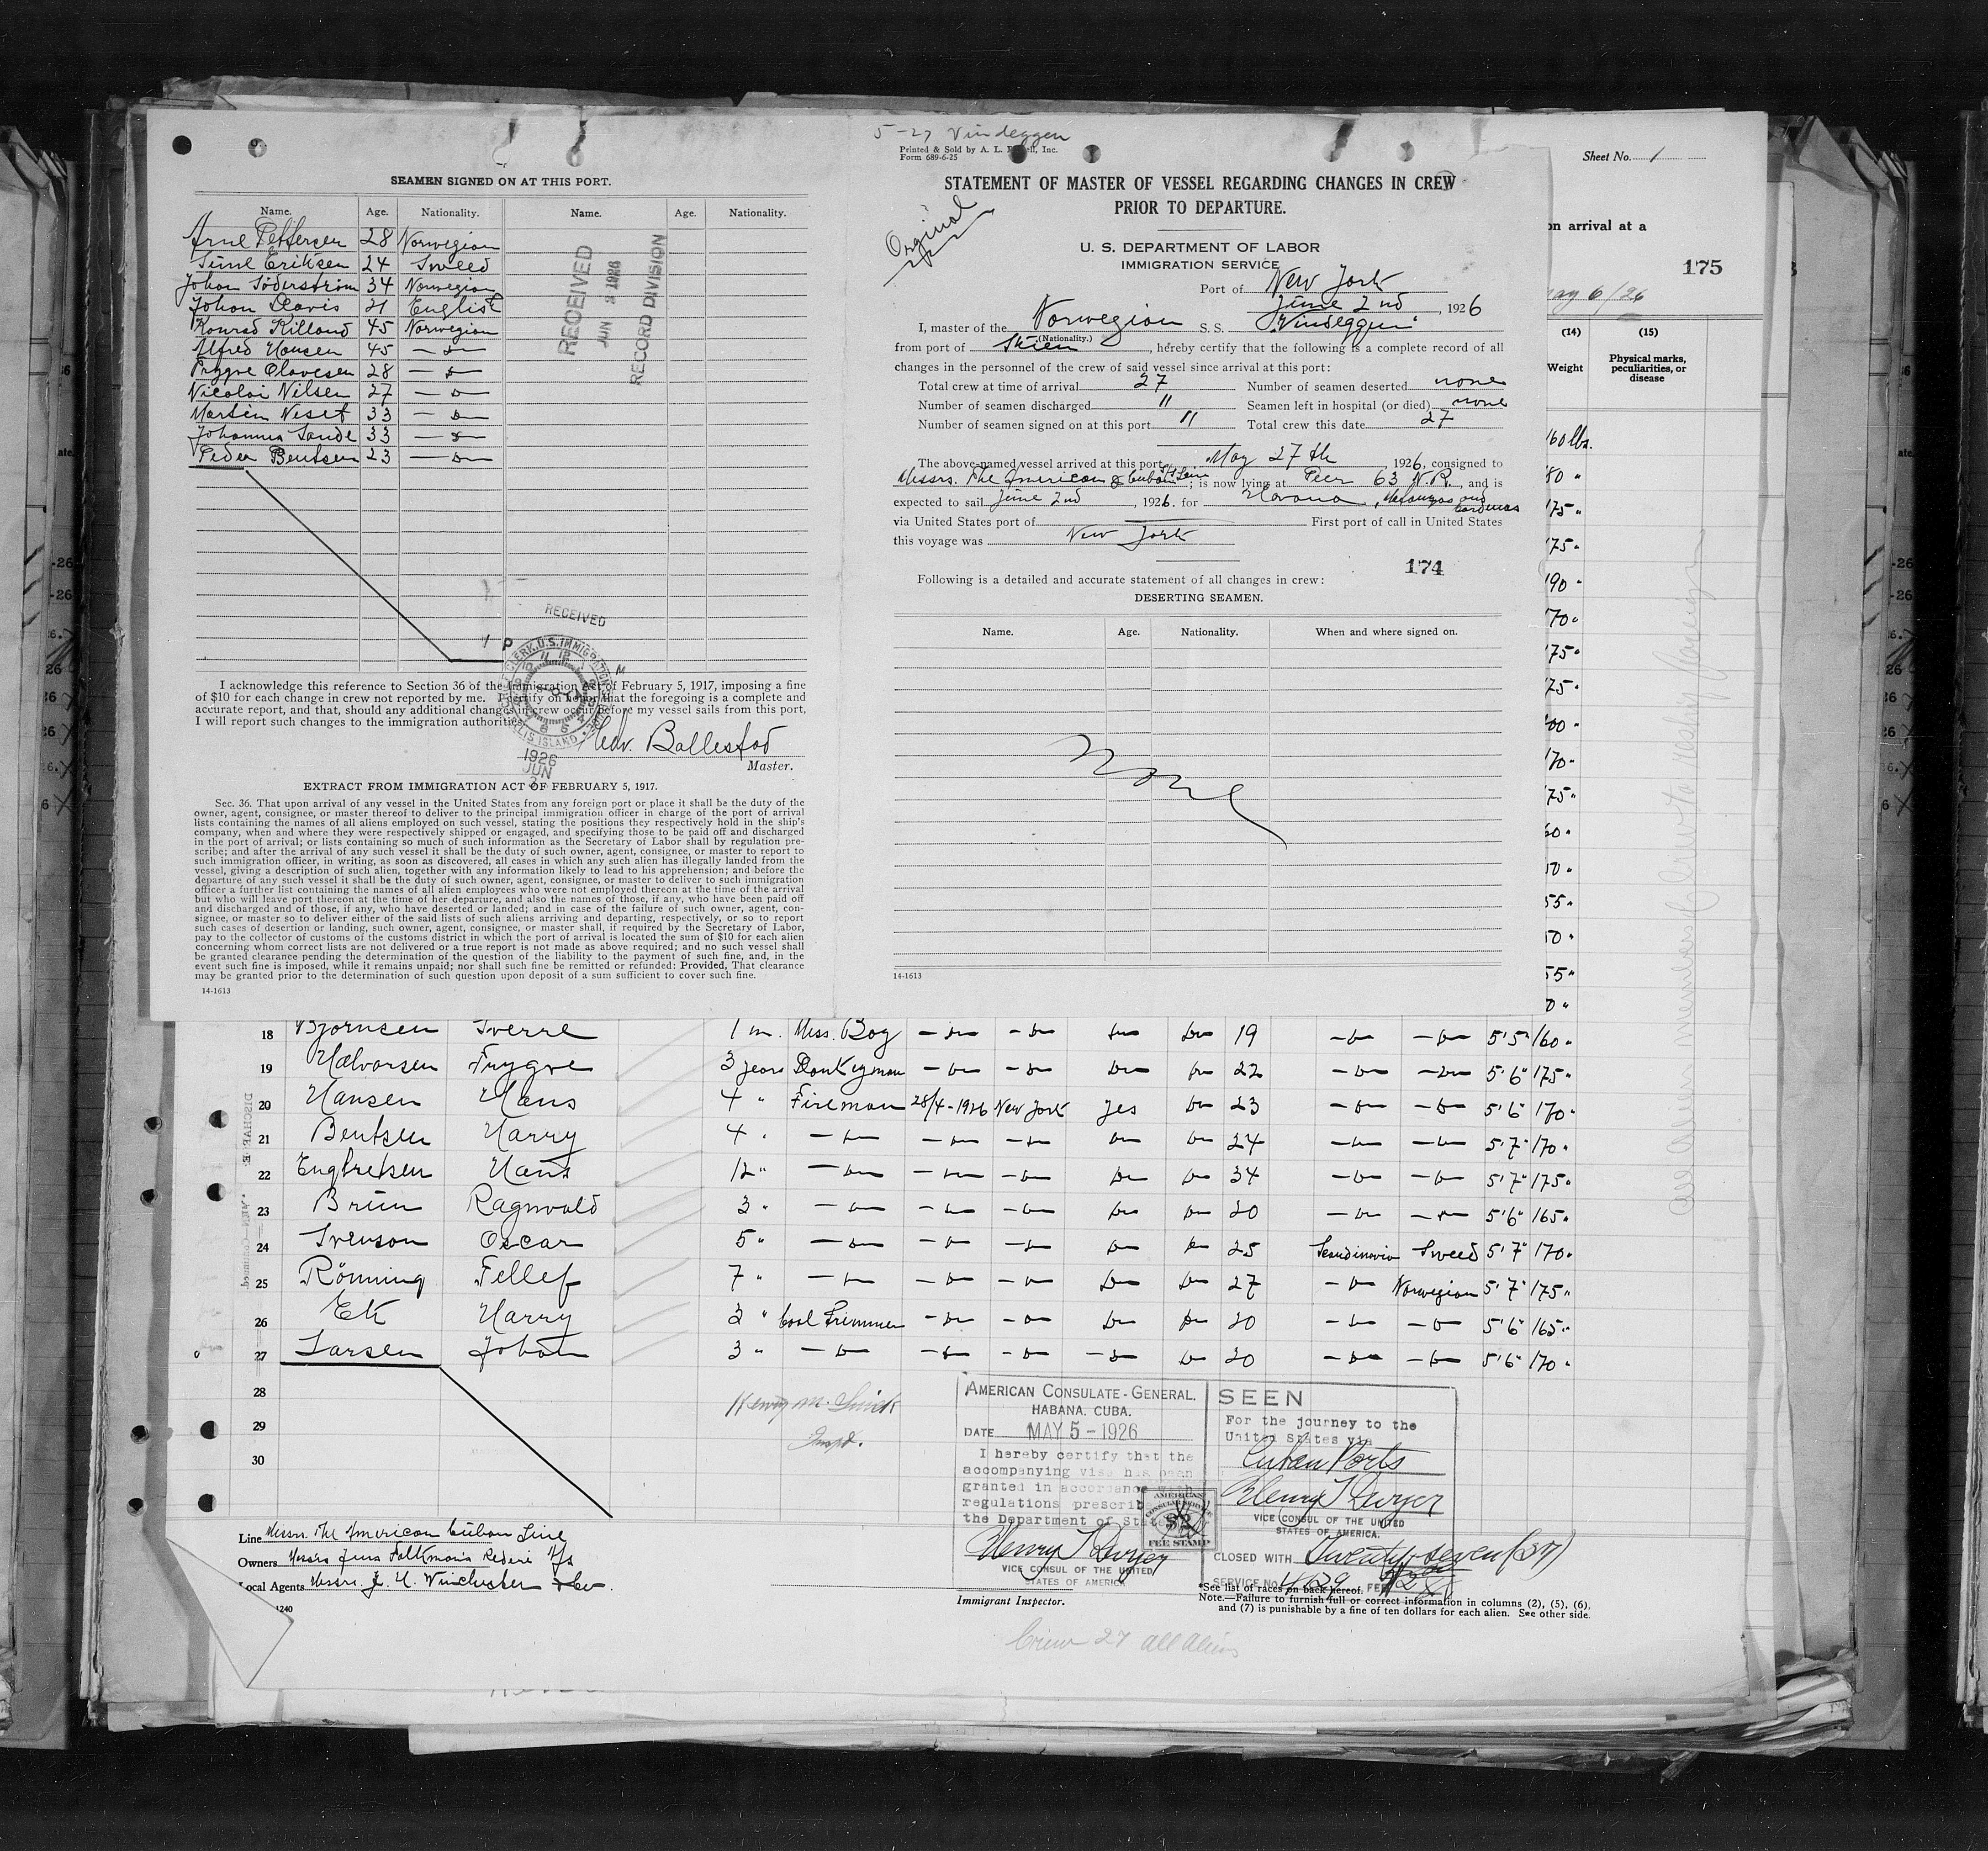 5-27 Vindeggen
Printed & Sold by A. L. R ell, Inc.
Form 689-6-25
SEAMEN SIGNED ON AT THIS PORT.
Name. Age. Nationality. Name. Age. Nationality.
Arne Pettersen 28 Norwegian
Eriksen 24 Sweed
Johan Söderström 34 Norwegian
Johan Davis 21 English
Konrad Killand 45 Norwegian
Alfred Hansen 45 — do —
Trygve Olavesen 28 — do —
Nicolai Nilsen 27 — do —
Martin Neset 33 — do —
Johannes Sande 33 — do —
Peder Bentsen 23 — do —
RECEIVED
JUN 3 1926
RECORD DIVISION
RECEIVED
CLERK, U.S. IMMIGRATION
ELLIS ISLAND
1926
JUN
3
I acknowledge this reference to Section 36 of the Immigration Act of February 5, 1917, imposing a fine
of $10 for each change in crew not reported by me. I certify on honor that the foregoing is a complete and
accurate report, and that, should any additional changes in crew occur before my vessel sails from this port,
I will report such changes to the immigration authorities.
Ballestad
Master.
EXTRACT FROM IMMIGRATION ACT OF FEBRUARY 5, 1917.
Sec. 36. That upon arrival of any vessel in the United States from any foreign port or place it shall be the duty of the
owner, agent, consignee, or master thereof to deliver to the principal immigration officer in charge of the port of arrival
lists containing the names of all aliens employed on such vessel, stating the positions they respectively hold in the ship's
company, when and where they were respectively shipped or engaged, and specifying those to be paid off and discharged
in the port of arrival; or lists containing so much of such information as the Secretary of Labor shall by regulation pre-
scribe; and after the arrival of any such vessel it shall be the duty of such owner, agent, consignee, or master to report to
such immigration officer, in writing, as soon as discovered, all cases in which any such alien has illegally landed from the
vessel, giving a description of such alien, together with any information likely to lead to his apprehension; and before the
departure of any such vessel it shall be the duty of such owner, agent, consignee, or master to deliver to such immigration
officer a further list containing the names of all alien employees who were not employed thereon at the time of the arrival
but who will leave port thereon at the time of her departure, and also the names of those, if any, who have been paid off
and discharged and of those, if any, who have deserted or landed; and in case of the failure of such owner, agent, con-
signee, or master so to deliver either of the said lists of such aliens arriving and departing, respectively, or so to report
such cases of desertion or landing, such owner, agent, consignee, or master shall, if required by the Secretary of Labor,
pay to the collector of customs of the customs district in which the port of arrival is located the sum of $10 for each alien
concerning whom correct lists are not delivered or a true report is not made as above required; and no such vessel shall
be granted clearance pending the determination of the question of the liability to the payment of such fine, and, in the
event such fine is imposed, while it remains unpaid; nor shall such fine be remitted or refunded: Provided, That clearance
may be granted prior to the determination of such question upon deposit of a sum sufficient to cover such fine.
14-1613
STATEMENT OF MASTER OF VESSEL REGARDING CHANGES IN CREW
PRIOR TO DEPARTURE.
Orginal
U. S. DEPARTMENT OF LABOR
IMMIGRATION SERVICE
Port of New York
June 2nd, 1926
I, master of the Norwegian S. S. "Vindeggen"
(Nationality.)
from port of Skien, hereby certify that the following is a complete record of all
changes in the personnel of the crew of said vessel since arrival at this port:
Total crew at time of arrival 27 Number of seamen deserted none
Number of seamen discharged 11 Seamen left in hospital (or died) none
Number of seamen signed on at this port 11 Total crew this date 27
The above-named vessel arrived at this port May 27th, 1926, consigned to
Messrs. The American & Cuban S/S Line; is now lying at Peer 63 N.R., and is
expected to sail June 2nd, 1926. for Havana, Matanzas and Cardenas
via United States port of — First port of call in United States
this voyage was New York
174
Following is a detailed and accurate statement of all changes in crew:
DESERTING SEAMEN.
Name. Age. Nationality. When and where signed on.
None
14-1613
Sheet No. 1
on arrival at a
175
May 6/26
(14) (15)
Weight Physical marks, peculiarities, or disease
160 lbs.
80 "
175 "
175 "
190 "
170 "
175 "
175 "
200 "
170 "
175 "
60 "
55 "
55 "
18 Bjørnsen Sverre 1 m. Mess. Boy — do — — do — do do 19 — do — — do — 5'5" 160 "
19 Halvorsen Trygve 3 years Donkeyman — do — — do — do do 22 — do — — do — 5'6" 175 "
20 Hansen Hans 4 " Fireman 28/4-1926 New York yes do 23 — do — — do — 5'6" 170 "
21 Bentsen Harry 4 " — do — — do — — do — do do 24 — do — — do — 5'7" 170 "
22 Engbretsen Hans 12 " — do — — do — — do — do do 34 — do — — do — 5'7" 175 "
23 Brün Ragnvald 3 " — do — — do — — do — do do 20 — do — — do — 5'6" 165 "
24 Svenson Oscar 5 " — do — — do — — do — do do 25 Scandinavia Sweed 5'7" 170 "
25 Rönning Tellef 7 " — do — — do — — do — do do 27 — do — Norwegian 5'7" 175 "
26 Ek Harry 2 " Coal Trimmer — do — — do — do do 20 — do — — do — 5'6" 165 "
27 Larsen Johan 3 " — do — — do — — do — — do — do 20 — do — — do — 5'6" 170 "
28
29
30
Henry M.
Inspt.
AMERICAN CONSULATE-GENERAL.
HABANA, CUBA.
DATE MAY 5-1926
I hereby certify that the
accompanying visa has been
granted in accordance with
regulations prescrib
the Department of State
Henry T Dwyer
VICE CONSUL OF THE UNITED
STATES OF AMERICA
AMERICAN
CONSULAR SERVICE
$2
FEE STAMP
SEEN
For the journey to the
United States via
Cuban Ports
Henry T Dwyer
VICE CONSUL OF THE UNITED
STATES OF AMERICA.
CLOSED WITH Twenty-seven (27)
SERVICE NO. 4629 FEE $2
Line Messrs. The American Cuban Line
Owners Messrs Jens Folkman's Rederi A/S
Local Agents Messrs. J. H. Winchester & Co.
1240
Immigrant Inspector.
*See list of races on back hereof.
Note.—Failure to furnish full or correct information in columns (2), (5), (6),
and (7) is punishable by a fine of ten dollars for each alien. See other side.
Crew 27 all aliens